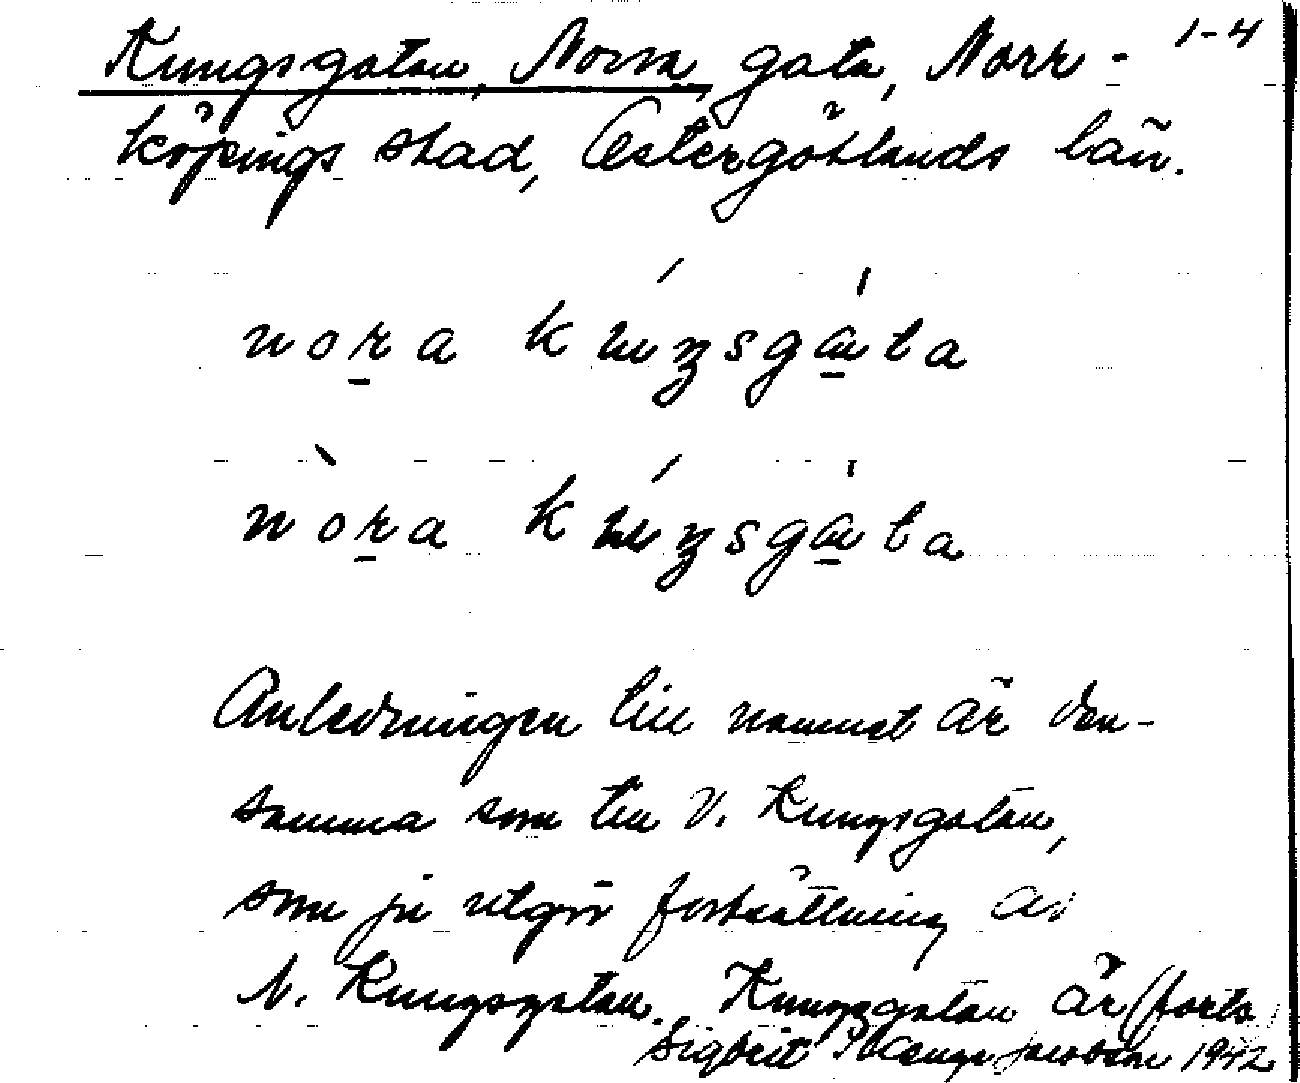 1-4
Kungsgatan, Norra, gata, Norr-
köpings stad, Östergötlands län.
nora kuŋsgáta
nòra kuŋsgáta
Anledningen till namnet är den-
samma som till V. Kungsgatan,
som ju utgör fortsättning av
N. Kungsgatan. Kungsgatan är (forts
Sigbrit 1942